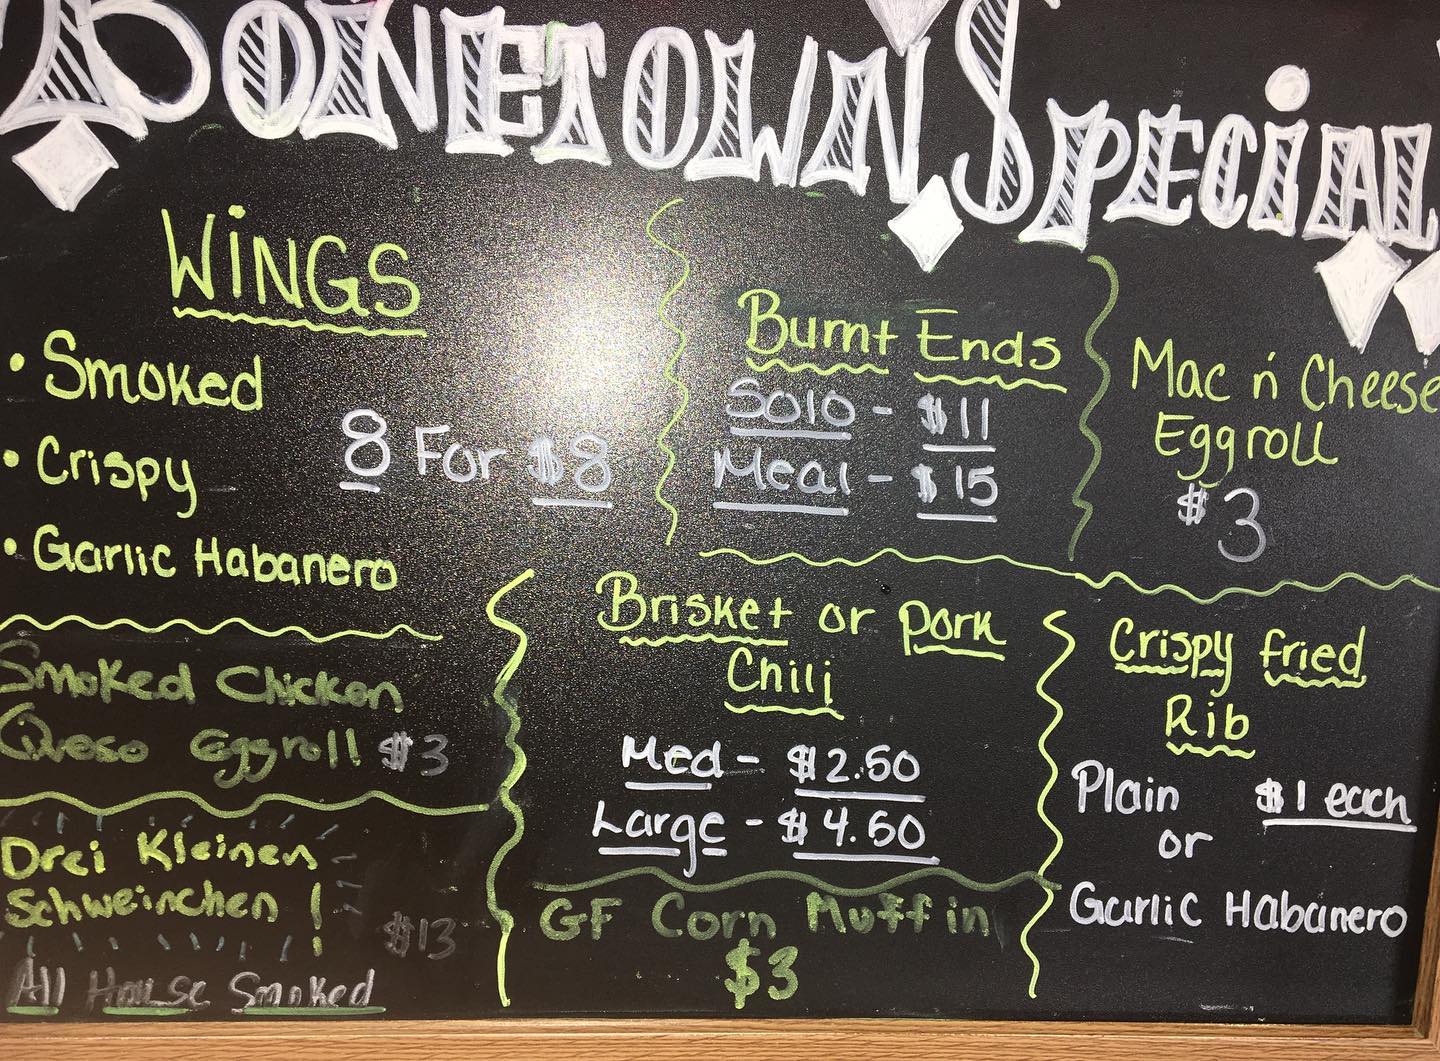 Bonetown Special
WiNGS
• Smoked
• Crispy
• Garlic Habanero
8 For $8
Burnt Ends
Solo - $11
Meal - $15
Mac n' Cheese
Eggroll
$3
Smoked Chicken
Queso Eggroll $3
Drei Kleinen
Schweinchen !
$13
All House Smoked
Brisket or Pork
Chili
Med - $2.50
Large - $4.50
GF Corn Muffin
$3
Crispy fried
Rib
Plain $1 each
or
Garlic Habanero